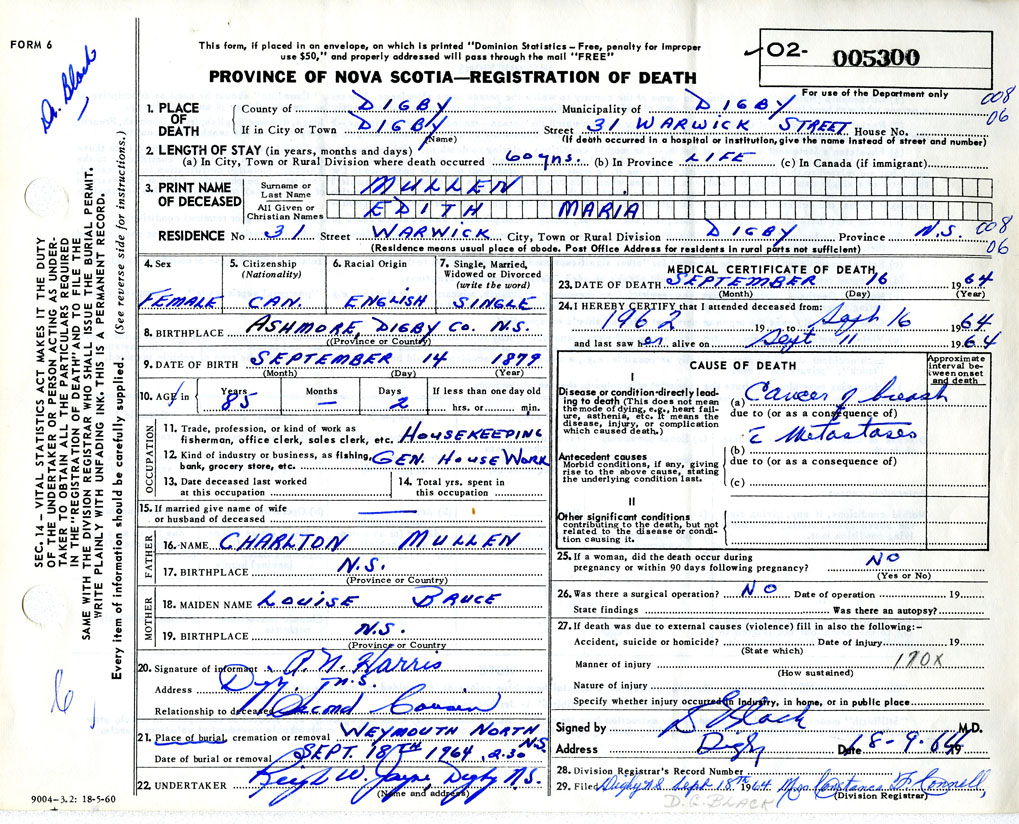 FORM 6
Dr. Black
This form, if placed in an envelope, on which is printed "Dominion Statistics – Free, penalty for improper
use $50," and properly addressed will pass through the mail "FREE"
PROVINCE OF NOVA SCOTIA—REGISTRATION OF DEATH
02- 005300
For use of the Department only
008
06
SEC. 14 – VITAL STATISTICS ACT MAKES IT THE DUTY
OF THE UNDERTAKER OR PERSON ACTING AS UNDER-
TAKER TO OBTAIN ALL THE PARTICULARS REQUIRED
IN THE "REGISTRATION OF DEATH" AND TO FILE THE
SAME WITH THE DIVISION REGISTRAR WHO SHALL ISSUE THE BURIAL PERMIT.
WRITE PLAINLY WITH UNFADING INK. THIS IS A PERMANENT RECORD.
Every item of information should be carefully supplied. (See reverse side for instructions.)
1. PLACE OF DEATH
County of DIGBY Municipality of DIGBY
If in City or Town DIGBY Street 31 WARWICK STREET House No.
(Name) (If death occurred in a hospital or institution, give the name instead of street and number)
2. LENGTH OF STAY (in years, months and days)
(a) In City, Town or Rural Division where death occurred 60 yrs. (b) In Province LIFE (c) In Canada (if immigrant)
3. PRINT NAME OF DECEASED
Surname or Last Name MULLEN
All Given or Christian Names EDITH MARIA
RESIDENCE No 31 Street WARWICK City, Town or Rural Division DIGBY Province N.S. 008
06
(Residence means usual place of abode. Post Office Address for residents in rural parts not sufficient)
4. Sex FEMALE
5. Citizenship (Nationality) CAN.
6. Racial Origin ENGLISH
7. Single, Married, Widowed or Divorced (write the word) SINGLE
8. BIRTHPLACE ASHMORE, DIGBY CO. N.S.
(Province or County)
9. DATE OF BIRTH SEPTEMBER 14 1879
(Month) (Day) (Year)
10. AGE in Years 85 Months — Days 2 If less than one day old hrs. or min.
OCCUPATION
11. Trade, profession, or kind of work as
fisherman, office clerk, sales clerk, etc. HOUSEKEEPING
12. Kind of industry or business, as fishing,
bank, grocery store, etc. GEN. HOUSE WORK
13. Date deceased last worked
at this occupation
14. Total yrs. spent in
this occupation
15. If married give name of wife
or husband of deceased ——
FATHER
16. NAME CHARLTON MULLEN
17. BIRTHPLACE N.S.
(Province or Country)
MOTHER
18. MAIDEN NAME LOUISE BRUCE
19. BIRTHPLACE N.S.
(Province or Country
20. Signature of informant A. N. Harris
Address Digby N.S.
Relationship to deceased Second Cousin
21. Place of burial, cremation or removal WEYMOUTH NORTH N.S.
Date of burial or removal SEPT 18TH 1964 2.30
22. UNDERTAKER W. Jayne, Digby N.S.
(Name and address)
9004-3.2: 18-5-60
MEDICAL CERTIFICATE OF DEATH
23. DATE OF DEATH SEPTEMBER 16 1964
(Month) (Day) (Year)
24. I HEREBY CERTIFY that I attended deceased from:
1962 19 to Sept 16 1964
and last saw her alive on Sept 11 1964
CAUSE OF DEATH
Approximate interval between onset and death
I
Disease or condition directly leading to death (This does not mean the mode of dying, e.g., heart failure, asthenia, etc. It means the disease, injury, or complication which caused death.)
(a) Cancer of breast
due to (or as a consequence of)
c̄ Metastases
(b)
due to (or as a consequence of)
(c)
Antecedent causes
Morbid conditions, if any, giving rise to the above cause, stating the underlying condition last.
II
Other significant conditions
contributing to the death, but not related to the disease or condition causing it.
25. If a woman, did the death occur during
pregnancy or within 90 days following pregnancy? NO
(Yes or No)
26. Was there a surgical operation? NO Date of operation 19
State findings Was there an autopsy?
27. If death was due to external causes (violence) fill in also the following:–
Accident, suicide or homicide? Date of injury 19
(State which)
Manner of injury 170X
(How sustained)
Nature of injury
Specify whether injury occurred in Industry, in home, or in public place
Signed by Black M.D.
Address Digby Date 18-9-64 19
28. Division Registrar's Record Number
29. Filed Digby NS Sept 18th 1964 Mrs Constance F. Connell
(Division Registrar)
D. G. BLACK